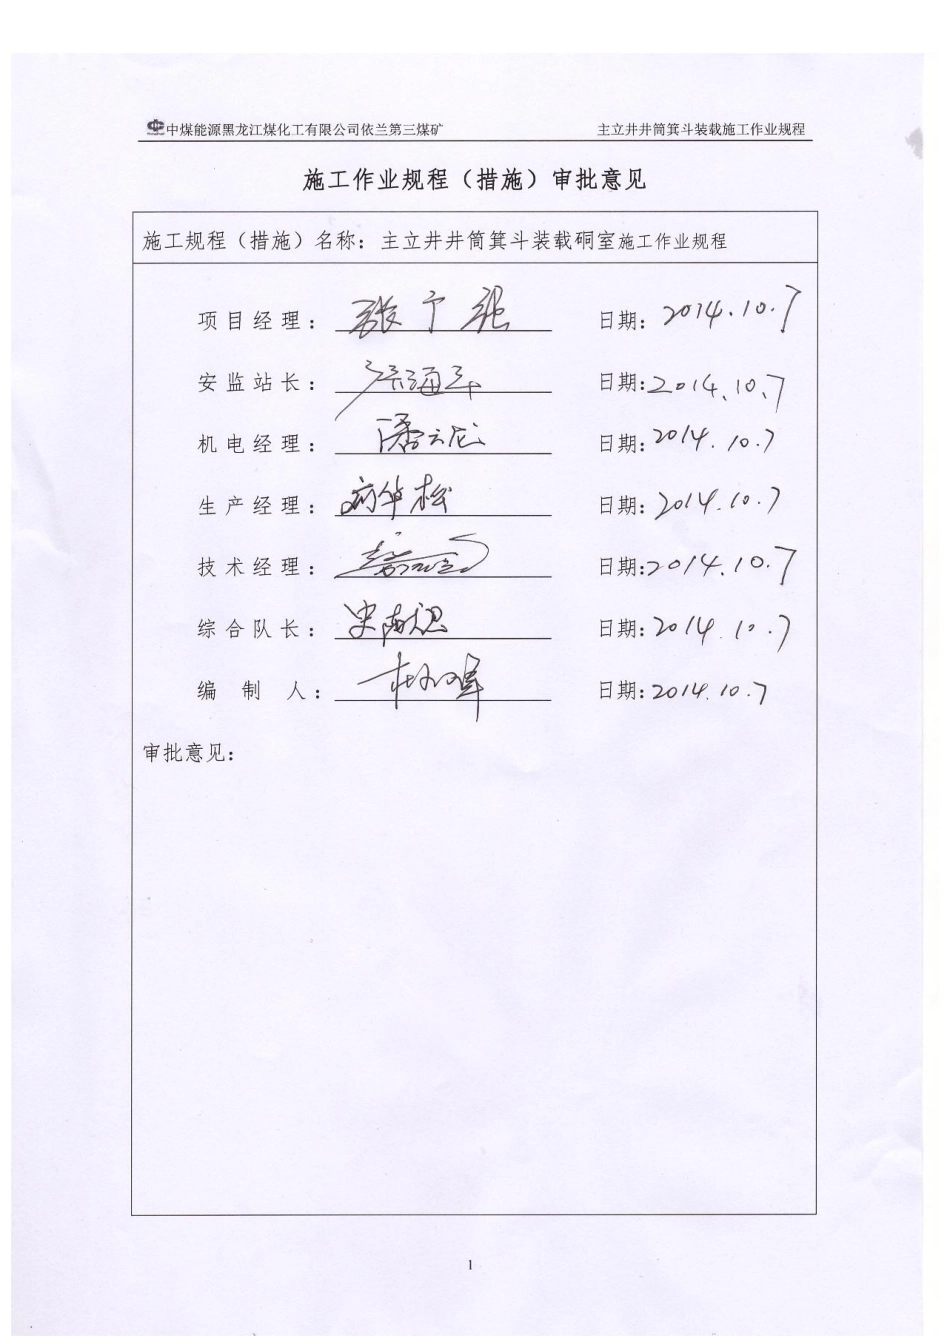 中煤能源黑龙江煤化工有限公司依兰第三煤矿 主立井井筒箕斗装载施工作业规程
施工作业规程（措施）审批意见
施工规程（措施）名称：主立井井筒箕斗装载硐室施工作业规程
项目经理： 日期：2014.10.7
安监站长： 日期：2014.10.7
机电经理：潘云龙 日期：2014.10.7
生产经理： 日期：2014.10.7
技术经理： 日期：2014.10.7
综合队长： 日期：2014.10.7
编 制 人： 日期：2014.10.7
审批意见：
1